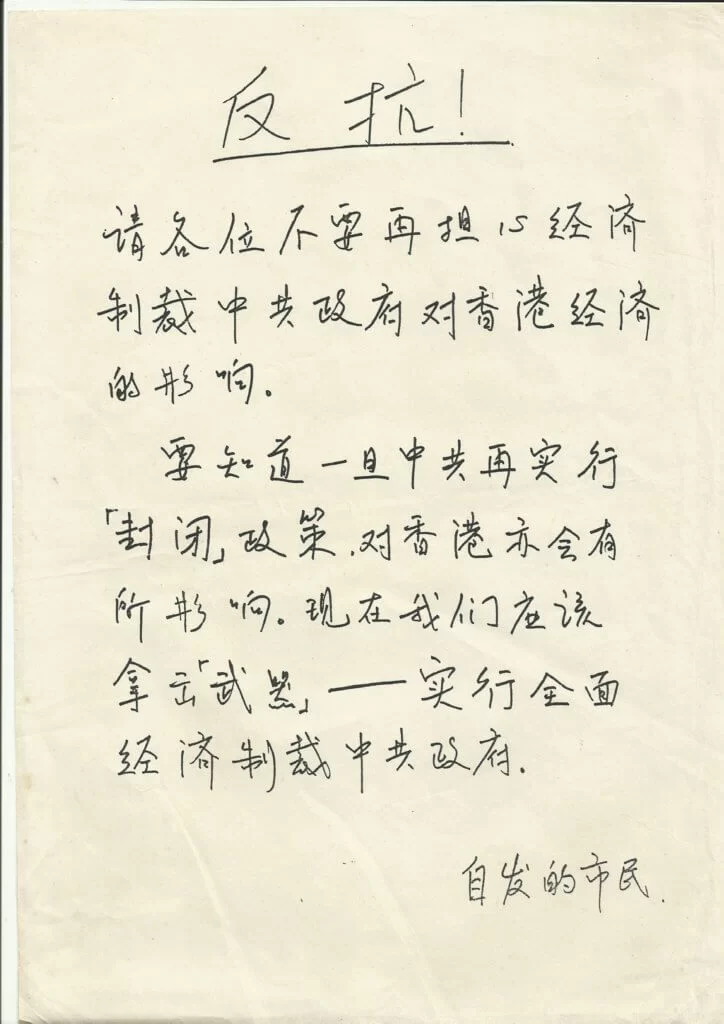 反抗！
请各位不要再担心经济
制裁中共政府对香港经济
的影响。
要知道一旦中共再实行
「封闭」政策，对香港亦会有
所影响。现在我们应该
拿出「武器」——实行全面
经济制裁中共政府．
自发的市民．